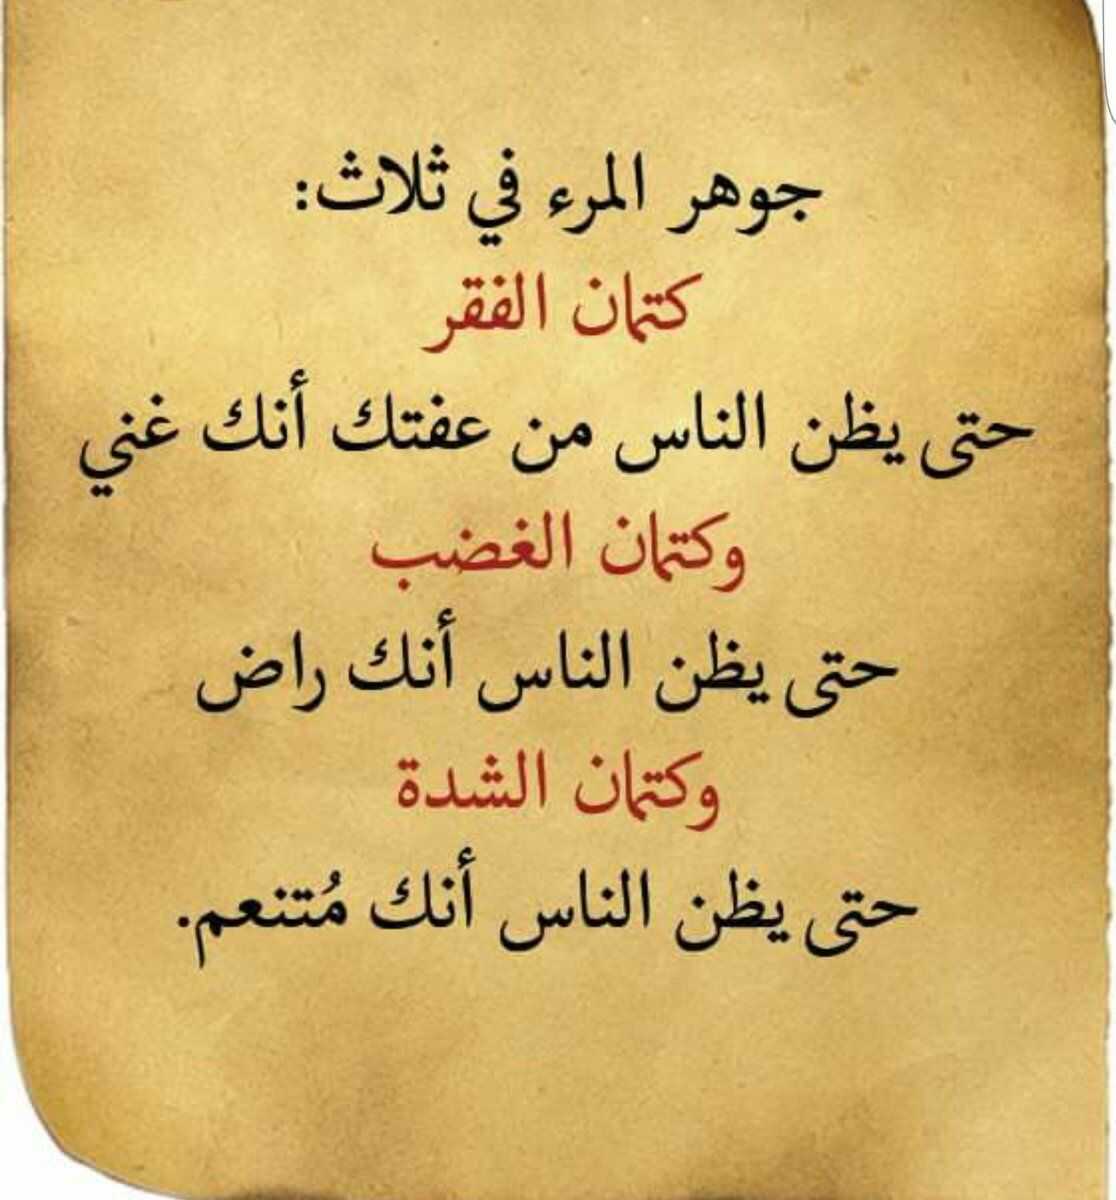 جوهر المرء في ثلاث:
كتمان الفقر
حتى يظن الناس من عفتك أنك غني
وكتمان الغضب
حتى يظن الناس أنك راض
وكتمان الشدة
حتى يظن الناس أنك مُتنعم.